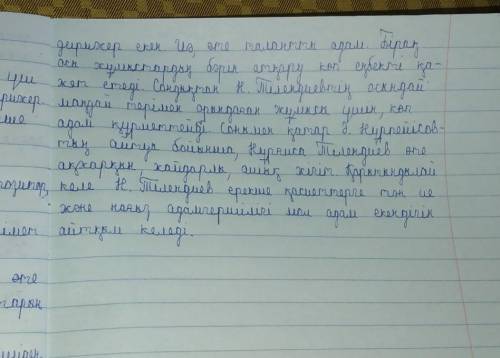 дирижер екен Иә, өте талантты адам. Бірақ
осы жұмыстардың бәрін атқару көп еңбекті қа-
жет етеді Сондықтан Н. Тілендиевтің осындай
маңдай терімен орындаған жұмысы үшін, көп
адам құрметтейді Сонымен қатар Ә. Нұрпейісов-
тың айтуы бойынша, Нұрғиса Тілендиев өте
ақжарқын, жайдарлы, ашық жігіт Қорытындылай
келе Н. Тілендиев ерекше қасиеттерге тән ие
және нағыз адамгершілігі мол адам екендігін
айтқым келеді.
үш
рижер
позитор,
өте